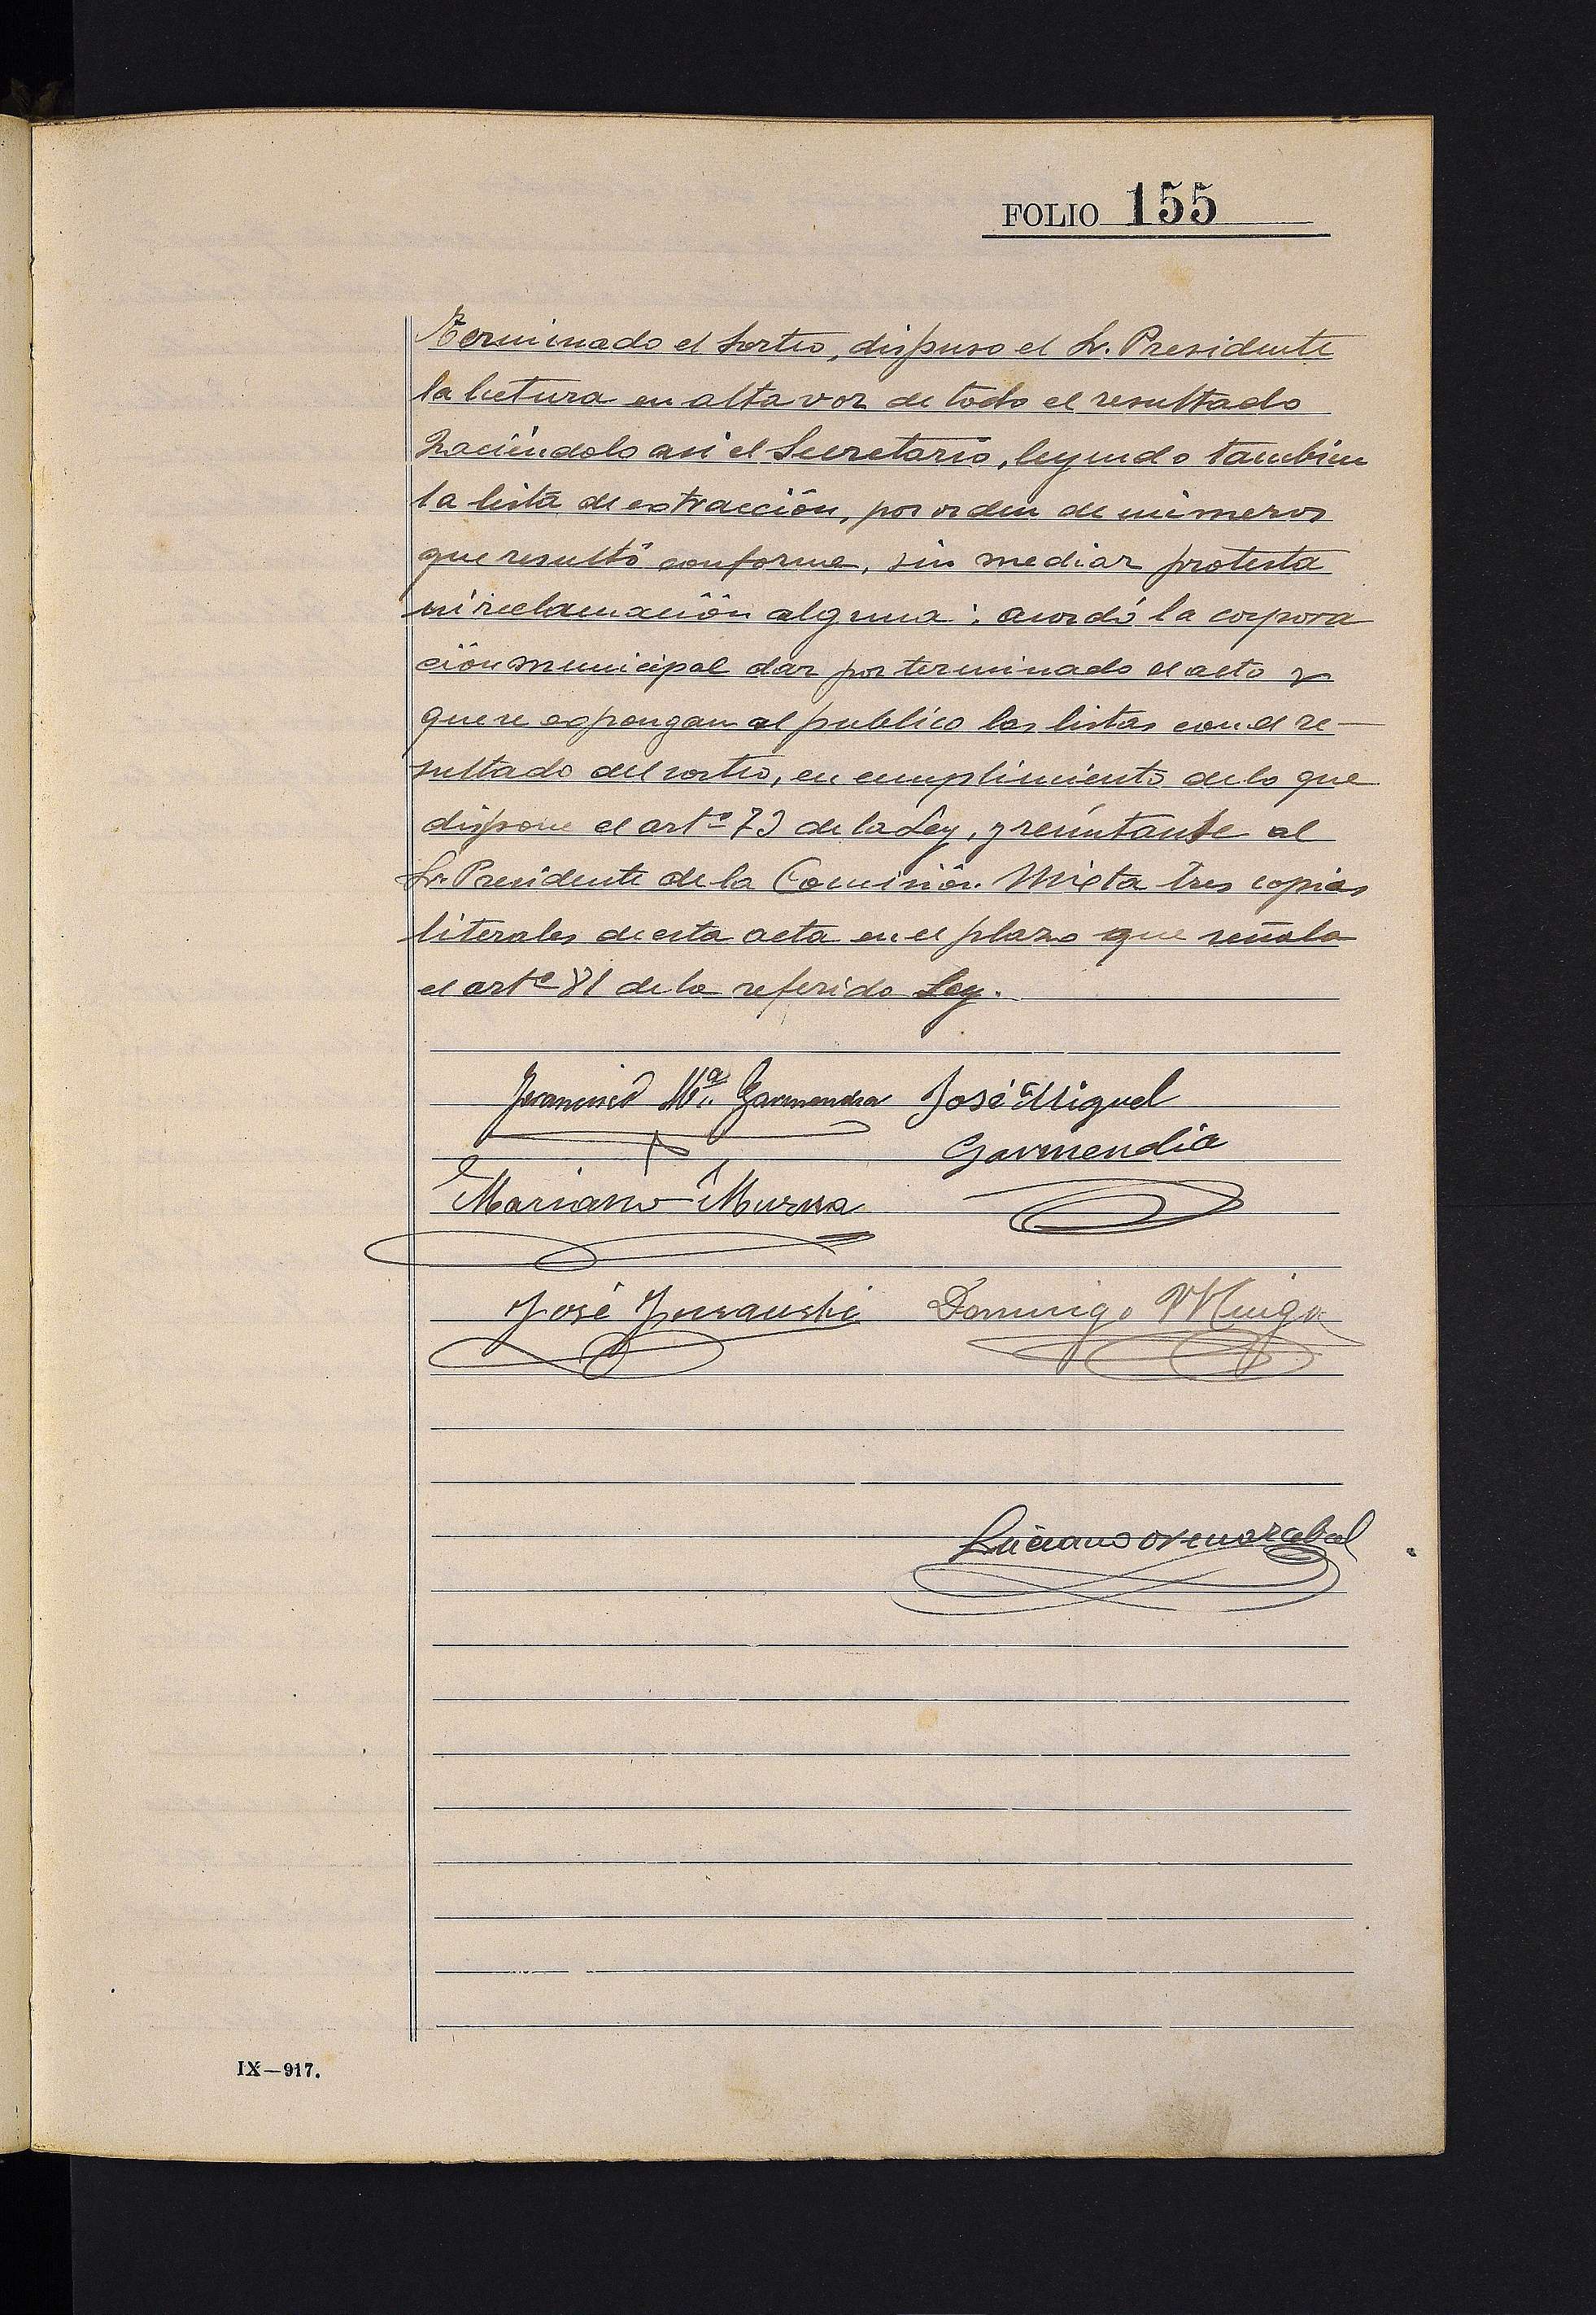 FOLIO 155
Terminado el sorteo, dispuso el Sr. Presidente
la lectura en alta voz de todo el resultado
haciéndolo asi el Secretario, leyendo tambien
la lista de extracción, por orden de números
que resultó conforme, sin mediar protesta
ni reclamación alguna: acordó la corpora
ción municipal dar por terminado el acto y
que se expongan al publico las listas con el re-
sultado del sorteo, en cumplimiento de lo que
dispone el artº 73 de la Ley, y remitanse al
Sr. Presidente de la Comisión Mixta tres copias
literales de esta acta en el plazo que señala
el artº 81 de la referida Ley.
Mª Garmendia José Miguel
Garmendia
Mariano
José Domingo
Luciano
IX—917.